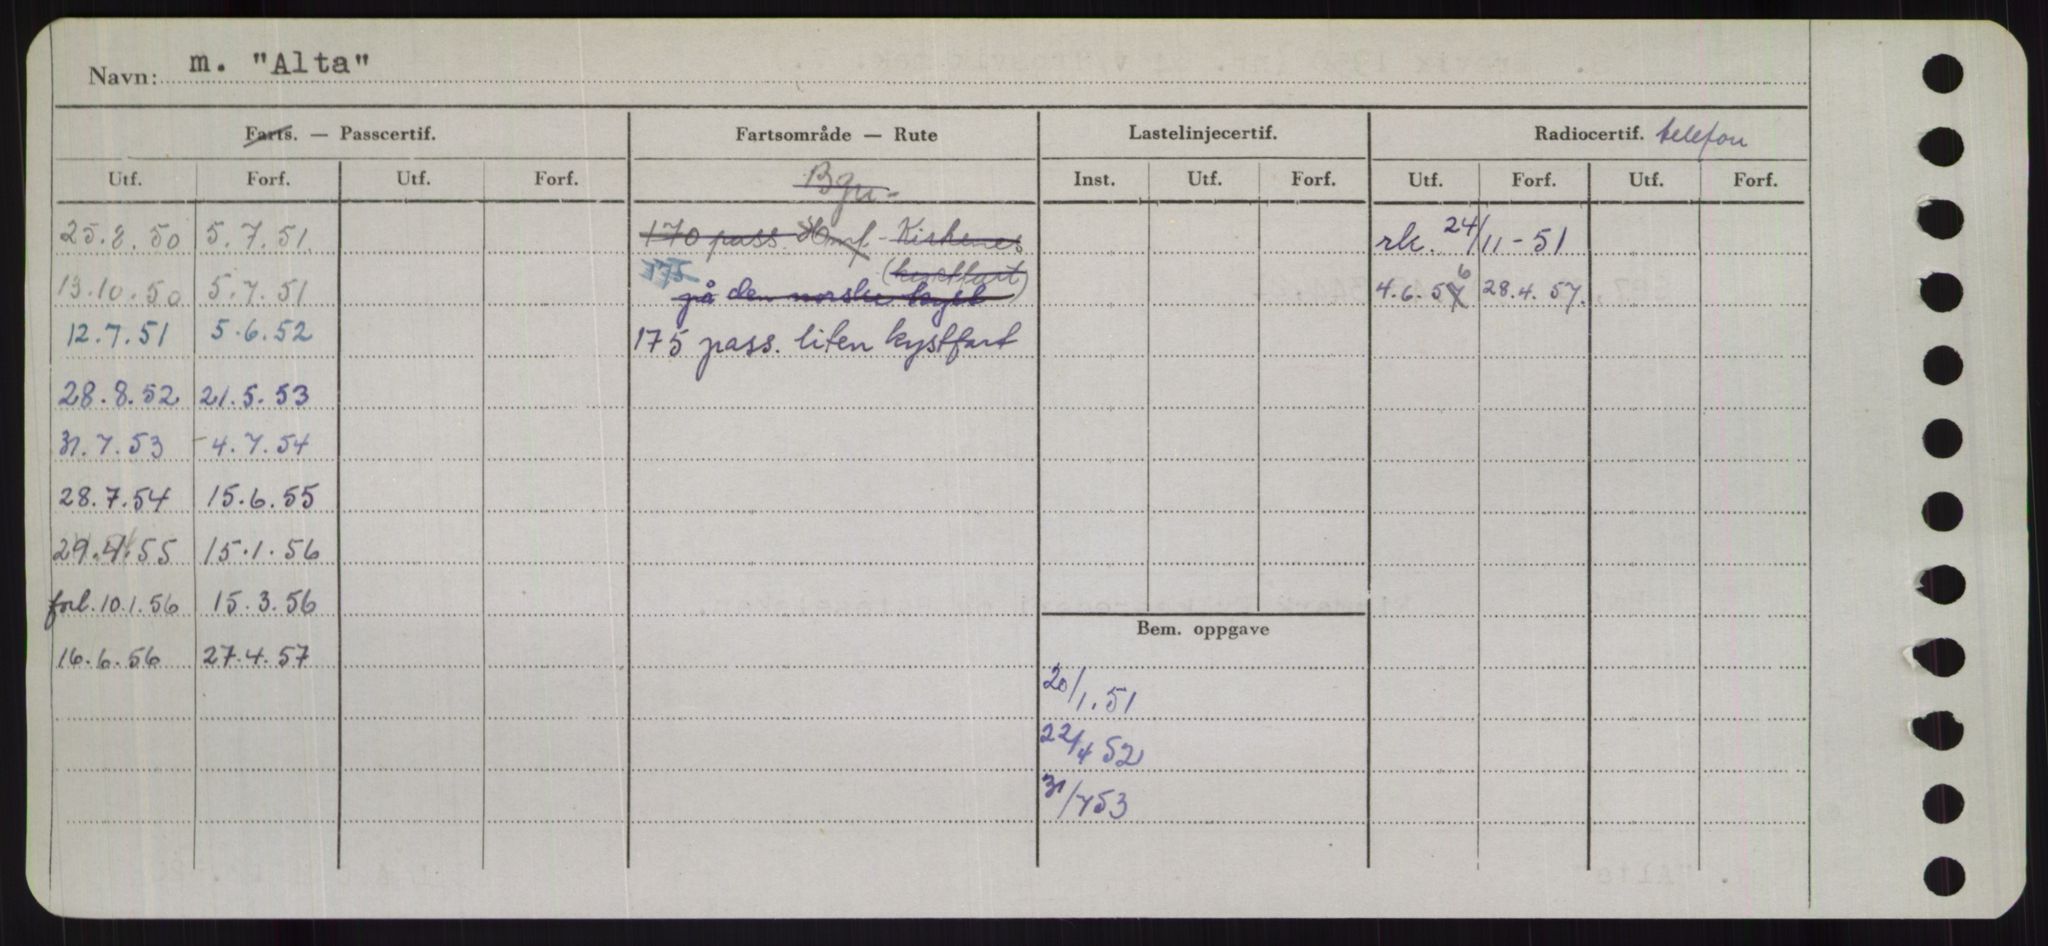 Navn: m. "Alta"
Farts. — Passcertif. Fartsområde — Rute Lastelinjecertif. Radiocertif. telefon
Utf. Forf. Utf. Forf. Bgn- Inst. Utf. Forf. Utf. Forf. Utf. Forf.
25.8.50 5.7.51. 170 pass. - Kirkenes rk. 24/11-51
(kystfart)
13.10.50 5.7.51 175 på den norske kyst 4.6.56 28.4.57.
12.7.51 5.6.52 175 pass. liten kystfart
28.8.52 21.5.53
31.7.53 -4.7.54
28.7.54 15.6.55
29.4.55 15.1.56
forl. 10.1.56 15.3.56
Bem. oppgave
16.6.56 27.4.57
20/1.51
22/4 52
31/7 53